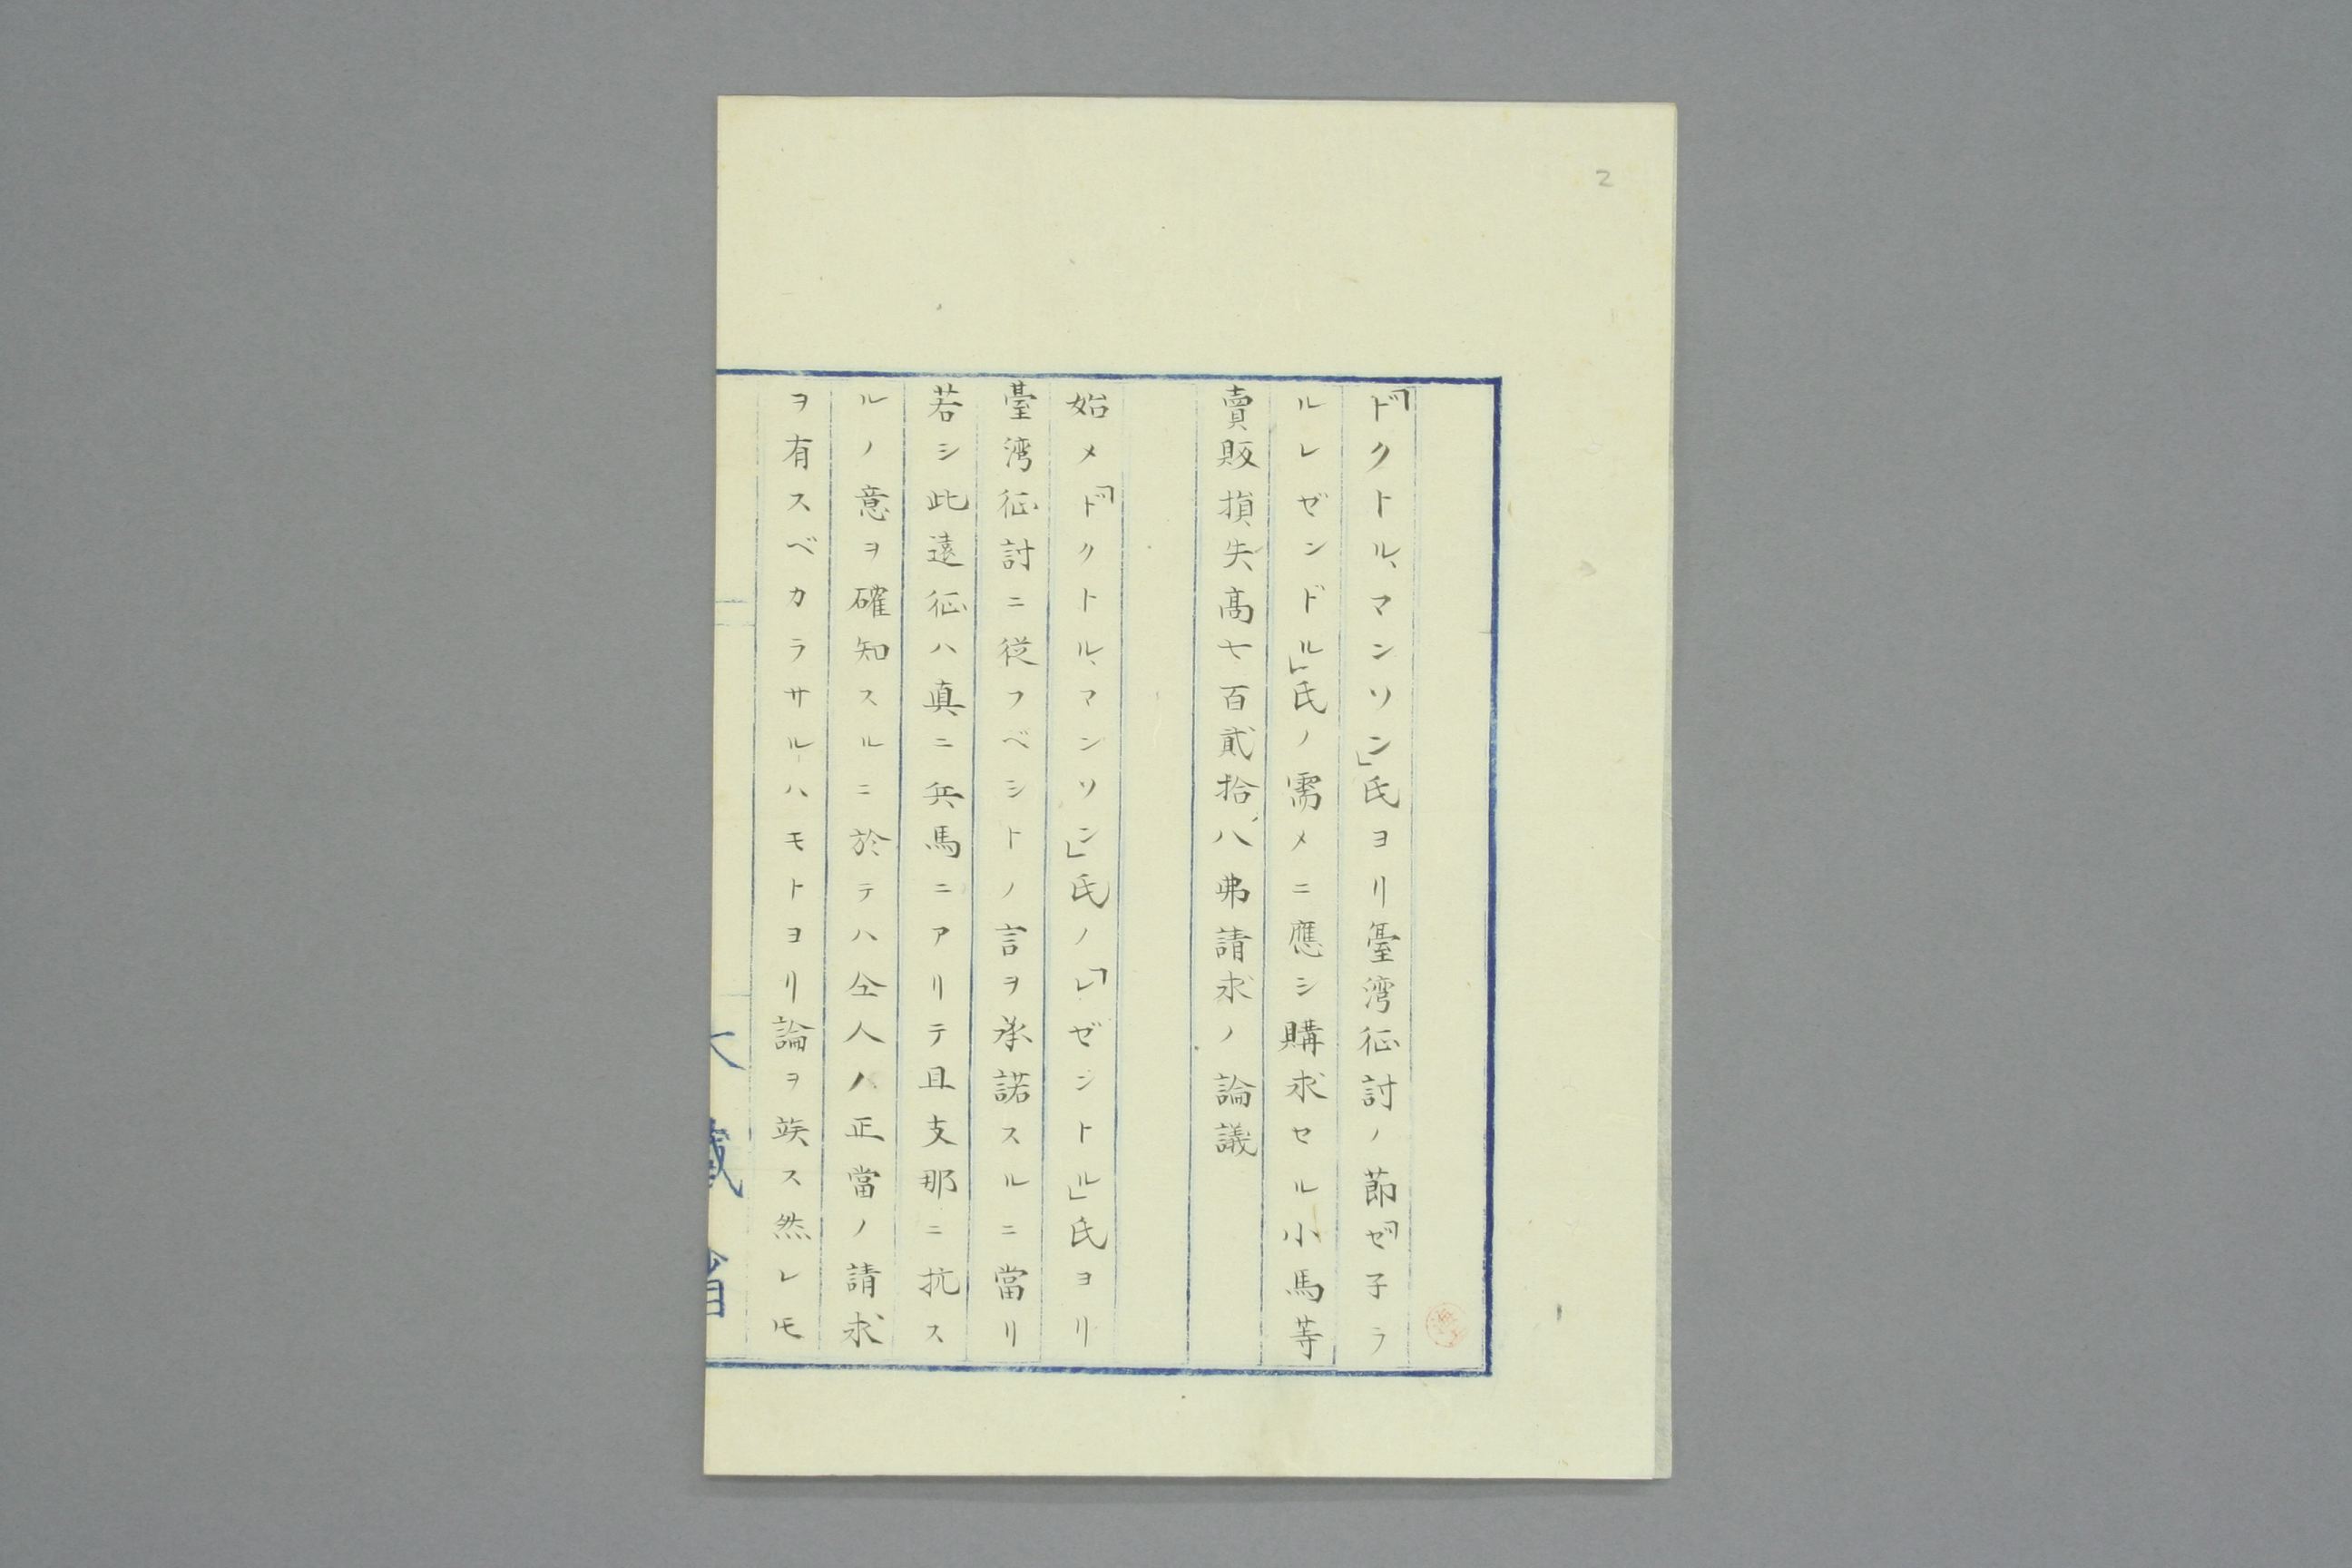 2
「ドクトル、マンソン」氏ヨリ臺湾征討ノ節「ゼ子ラ
ルレゼンドル」氏ノ需メニ應シ購求セル小馬等
賣販損失高七百貳拾八弗請求ノ論議
始メ「ドクトル、マンソン」氏ノ「レゼントル」氏ヨリ
臺湾征討ニ従フベシトノ言ヲ承諾スルニ當リ
若シ此遠征ハ真ニ兵馬ニアリテ且支那ニ抗ス
ルノ意ヲ確知スルニ於テハ仝人ノ正當ノ請求
ヲ有スベカラサルハモトヨリ論ヲ竢ス然レ𪜈
大藏省